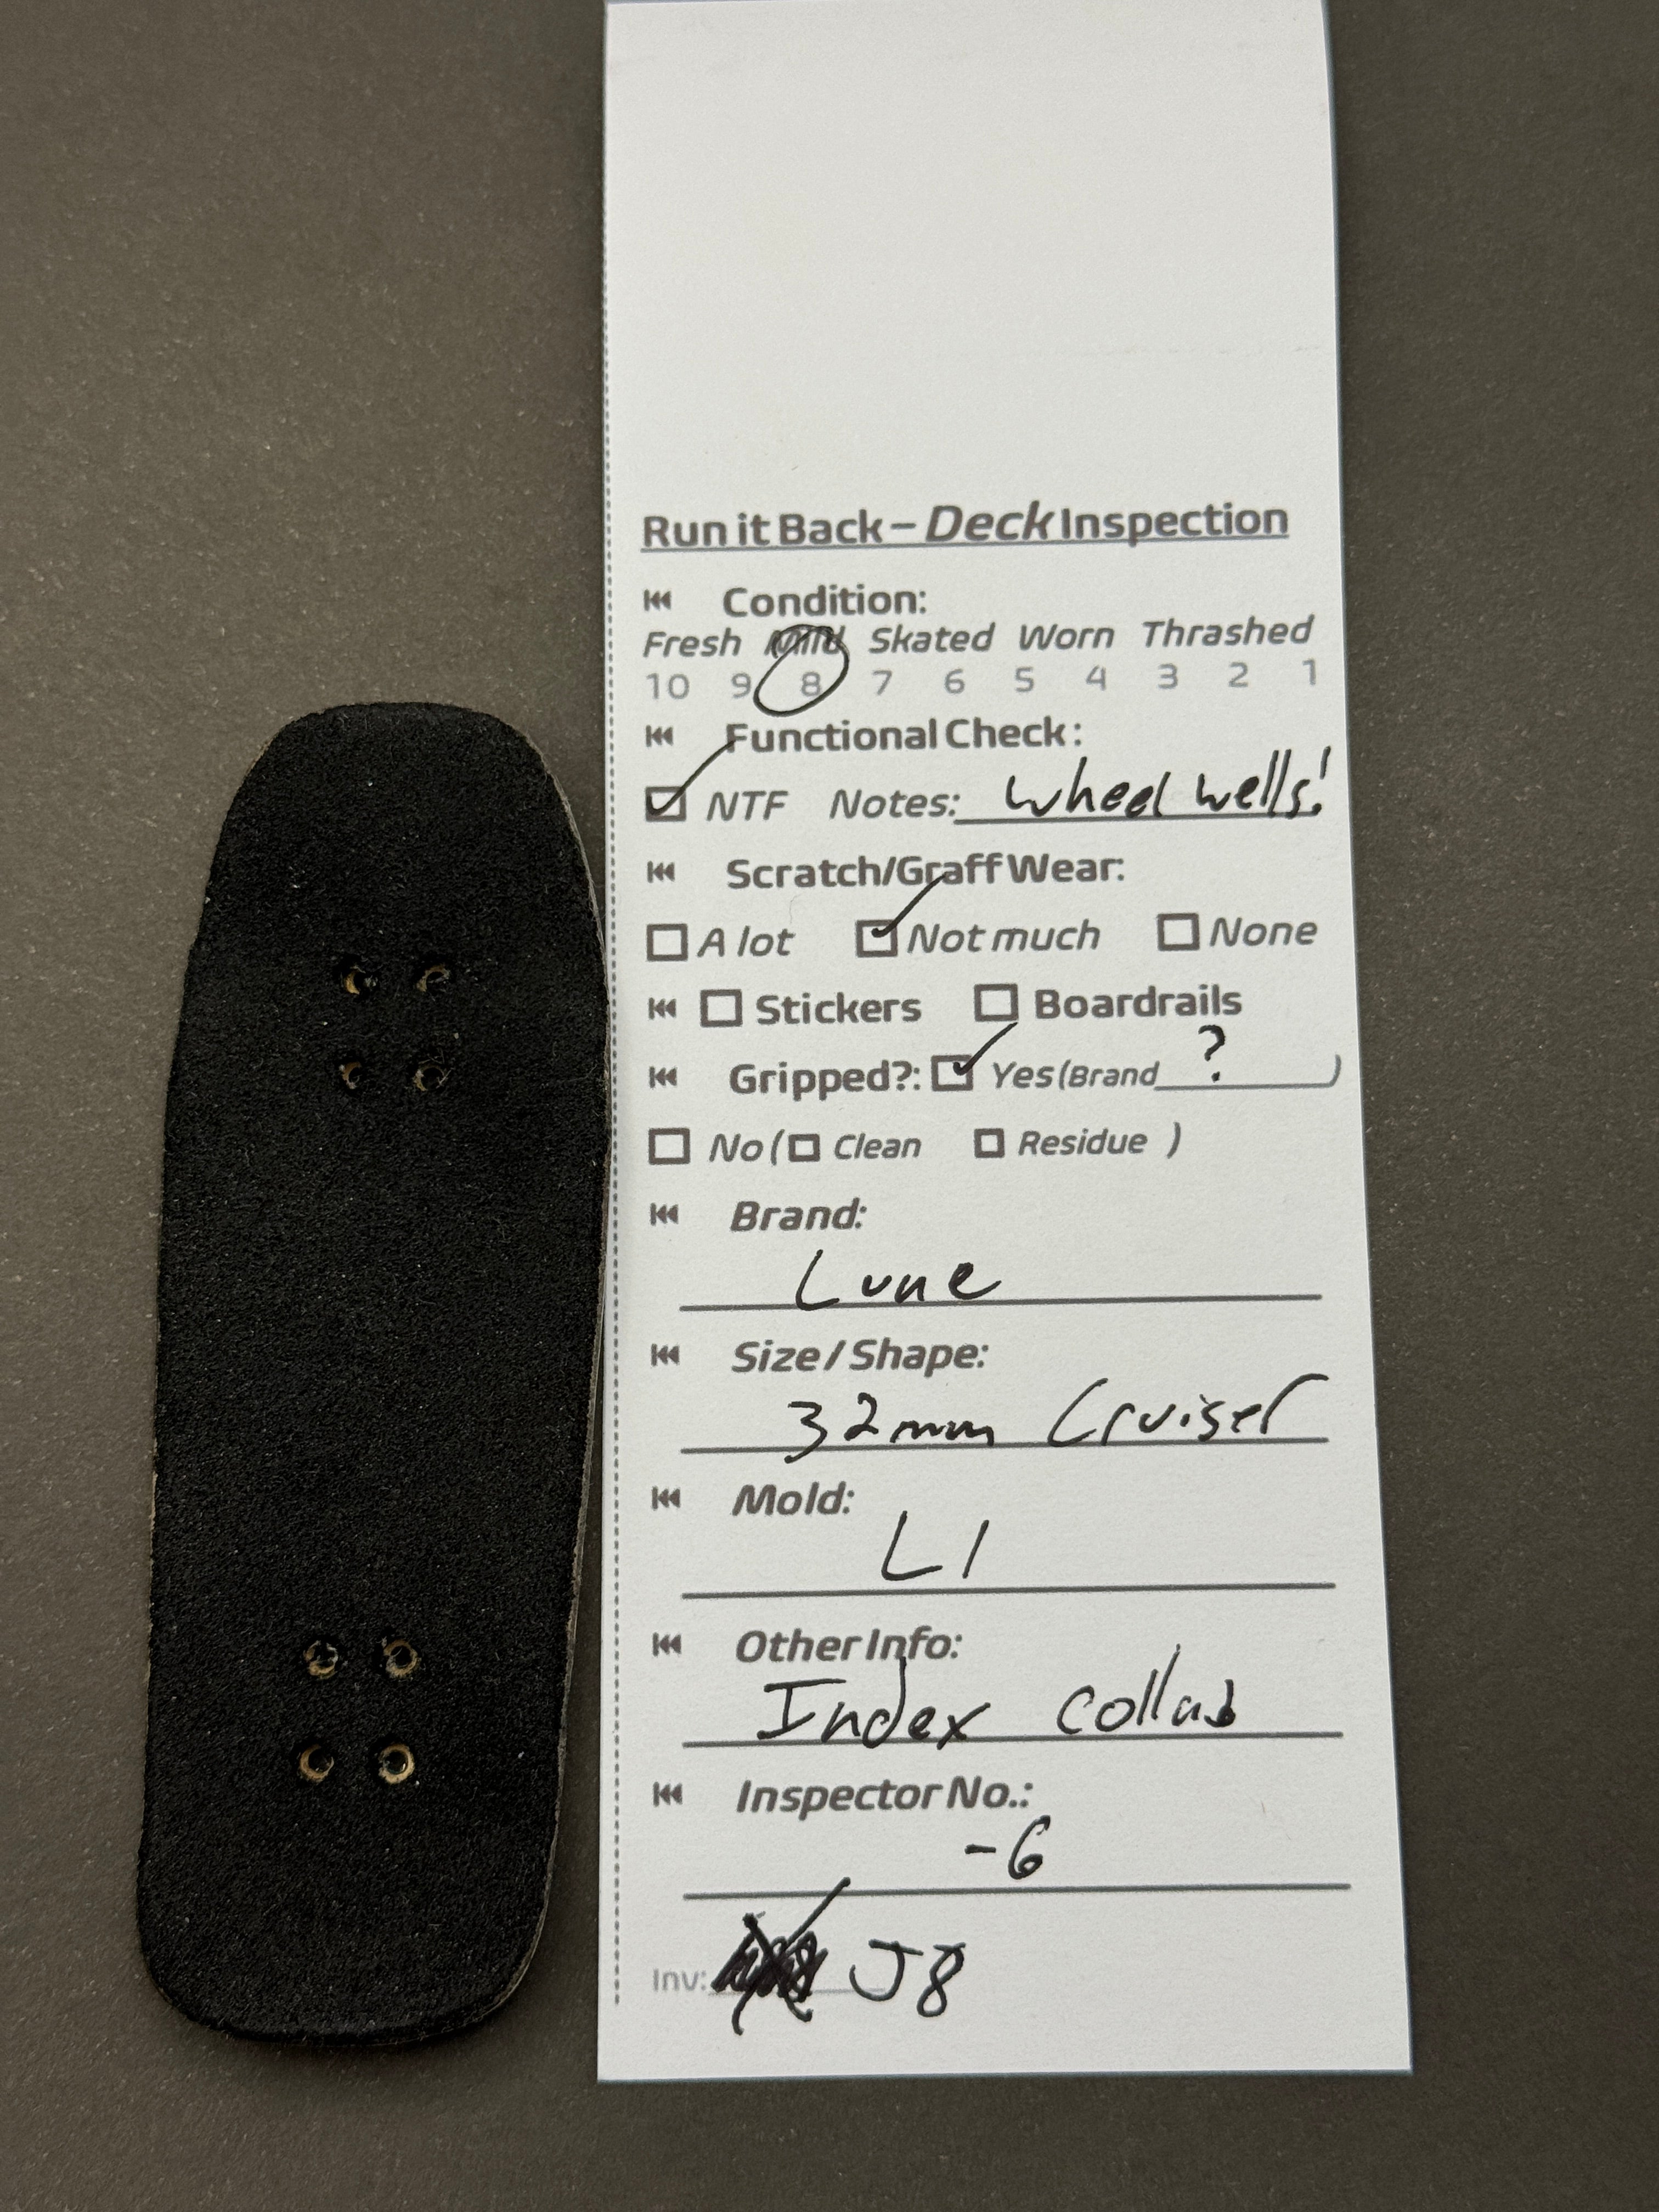 Run it Back – Deck Inspection
Condition:
Fresh Mild Skated Worn Thrashed
10 9 8 7 6 5 4 3 2 1
Functional Check:
NTF Notes: wheel wells!
Scratch/Graff Wear:
A lot Not much None
Stickers Boardrails
Gripped?: Yes (Brand ? )
No ( Clean Residue )
Brand:
Lune
Size / Shape:
32mm Cruiser
Mold:
L1
Other Info:
Index collab
Inspector No.:
-6
Inv: J8